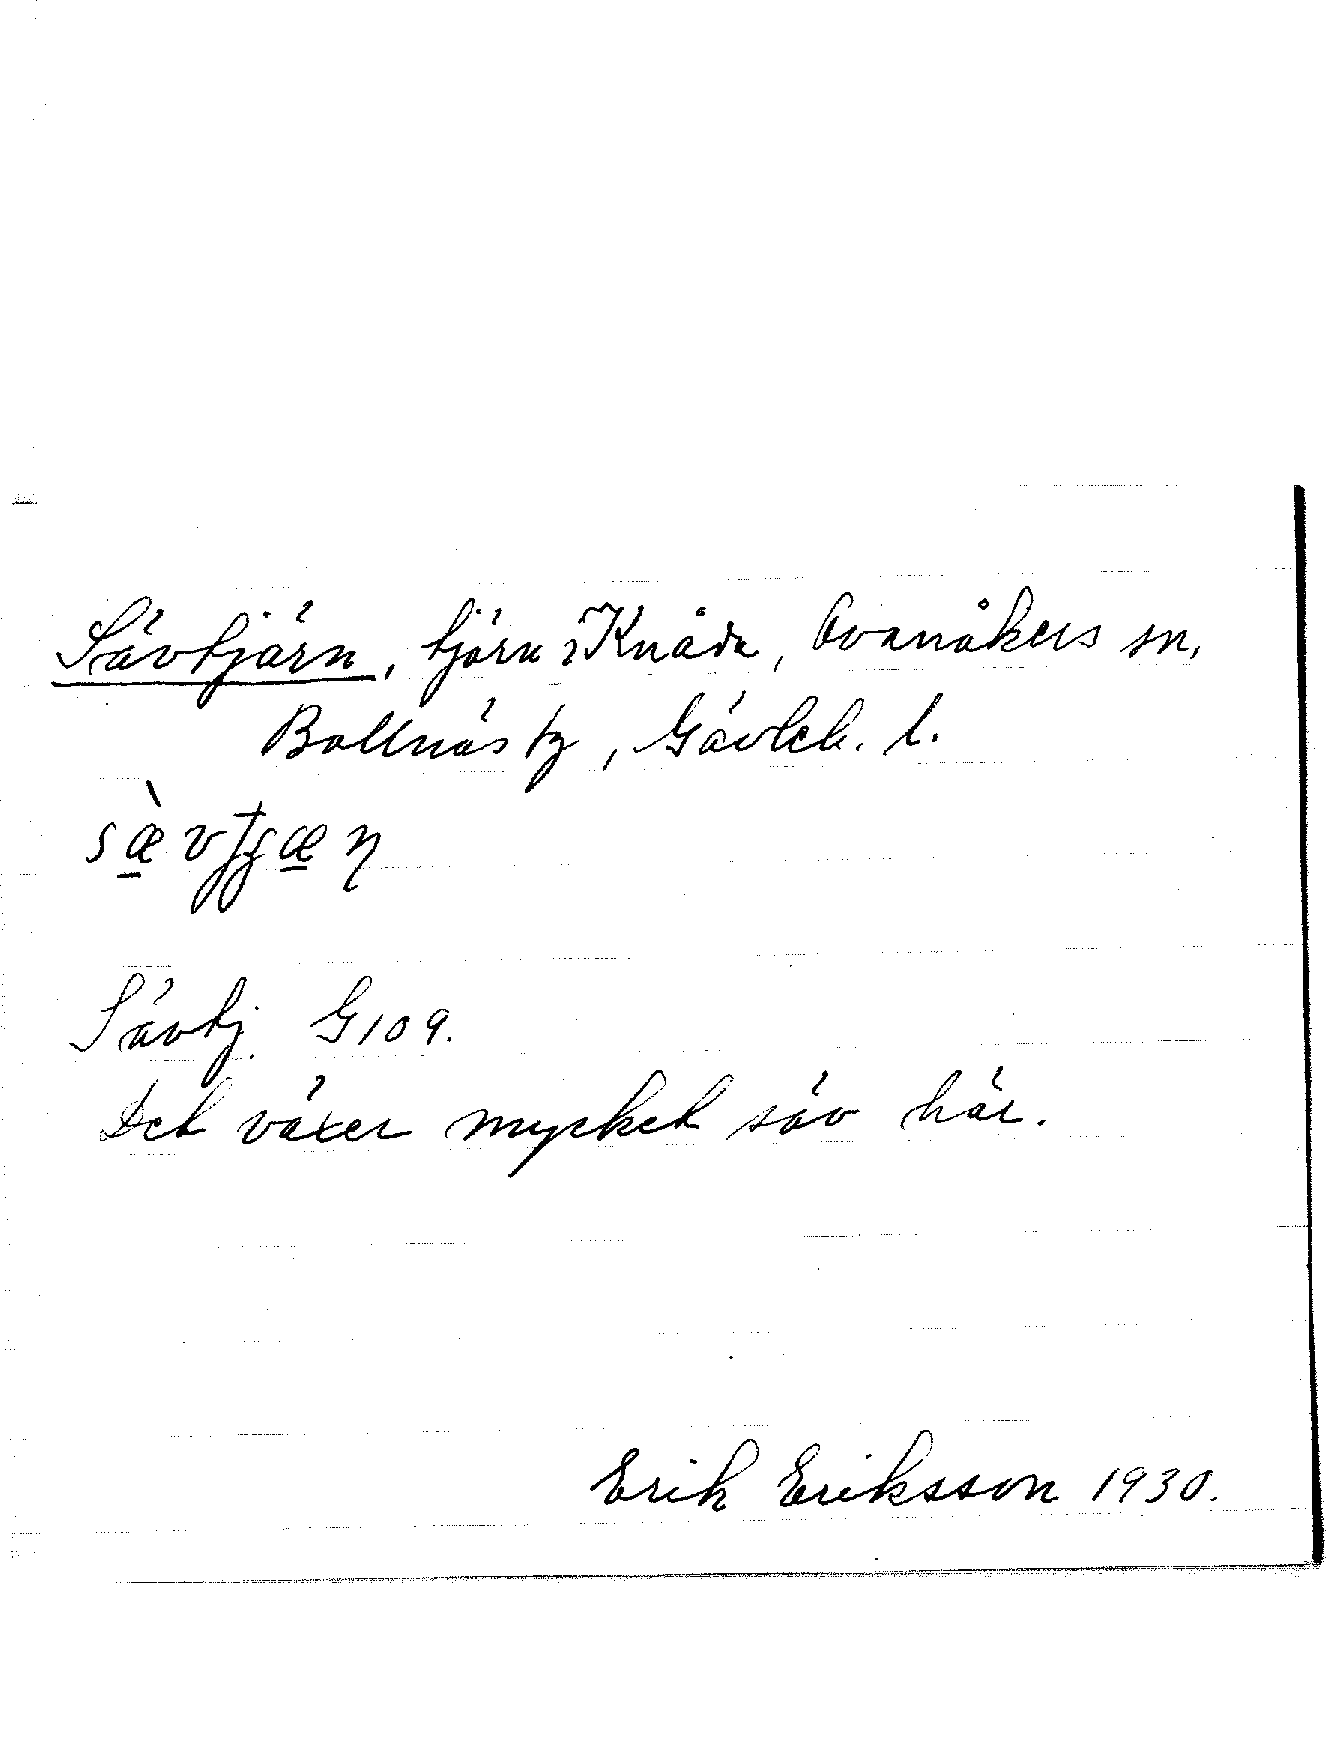 Sävtjärn, tjärn i Knåda, Ovanåkers sn,
Bollnäs tg, Gävleb. l.
Sävtj. G109.
Det växer mycket säv här.
Erik Eriksson 1930.